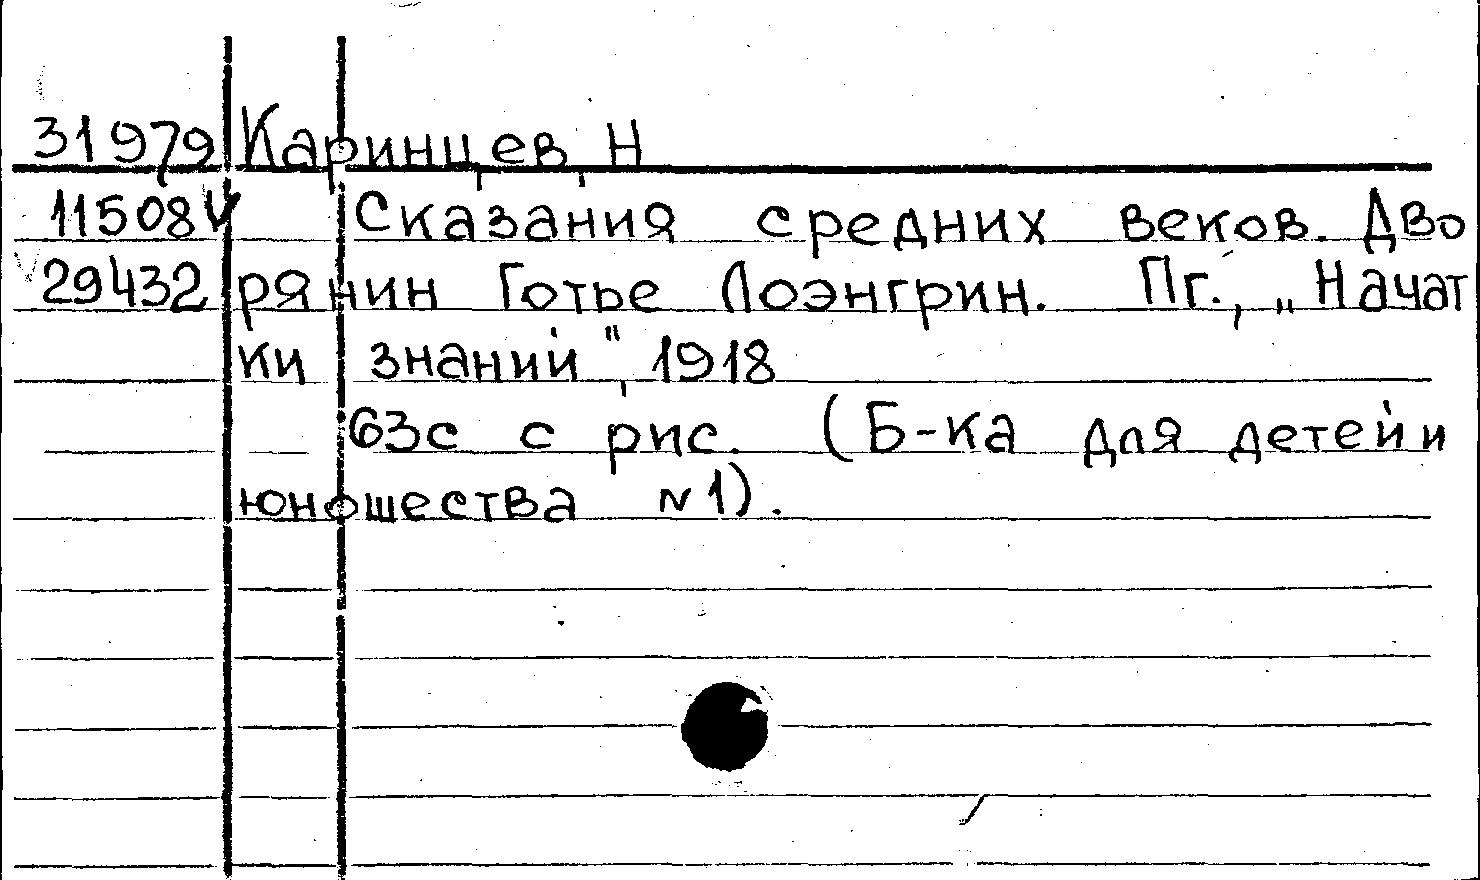 31979 Каринцев, Н
11508 V Сказания средних веков. Дво
V 29432 рянин Готье Лоэнгрин. Пг., „Начат
ки знаний", 1918
63с с рис. (Б-ка для детей и
юношества N1).